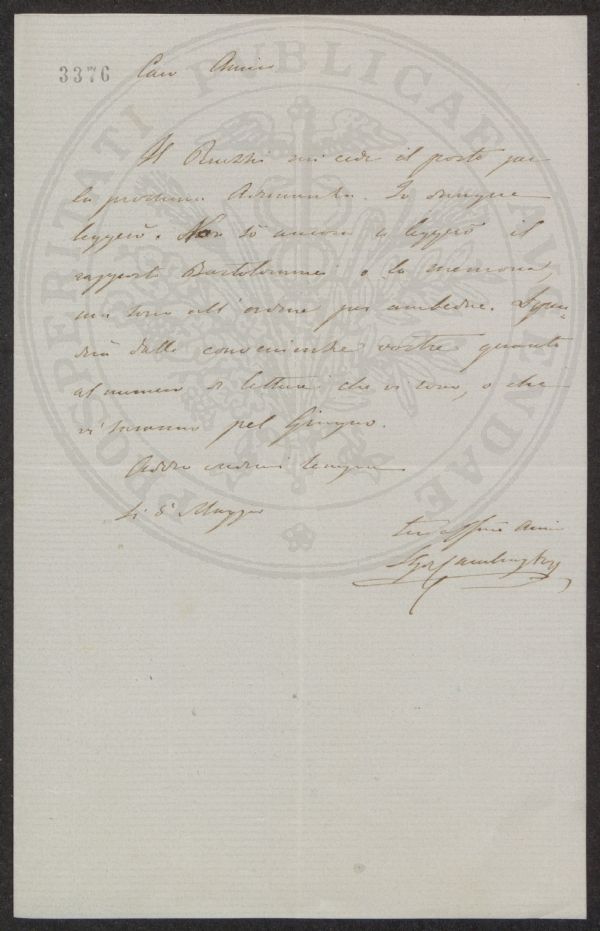 3376
Caro Amico
Il Ruschi mi cede il posto per
la prossima Adunanza. Io dunque
leggerò. Non sò ancora se leggerò il
rapporto Bartolommei o la memoria,
ma sono all'ordine per ambedue.
dalla convenienza vostra quanto
al numero di letture che vi sono, o che
vi saranno pel Giugno.
Addio
Li 8 Maggio
Amico
PROSPERITATI PUBLICAE AUGENDAE